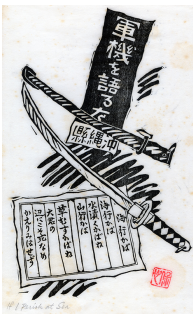 軍機を語るな
沖縄縣
海行かば
水漬くかばね
山行かば
草むすかばね
大君の
辺にこそ死なめ
かえりみはせず